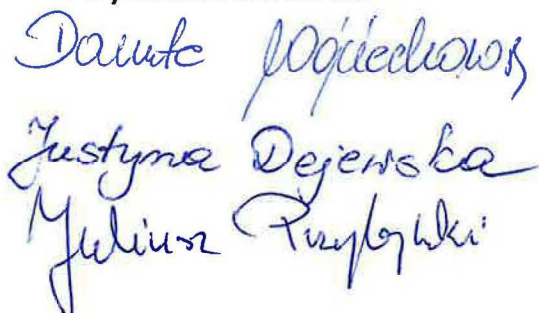 Danuta Wojciechows
Justyna Dejewska
Juliusz Przybylski